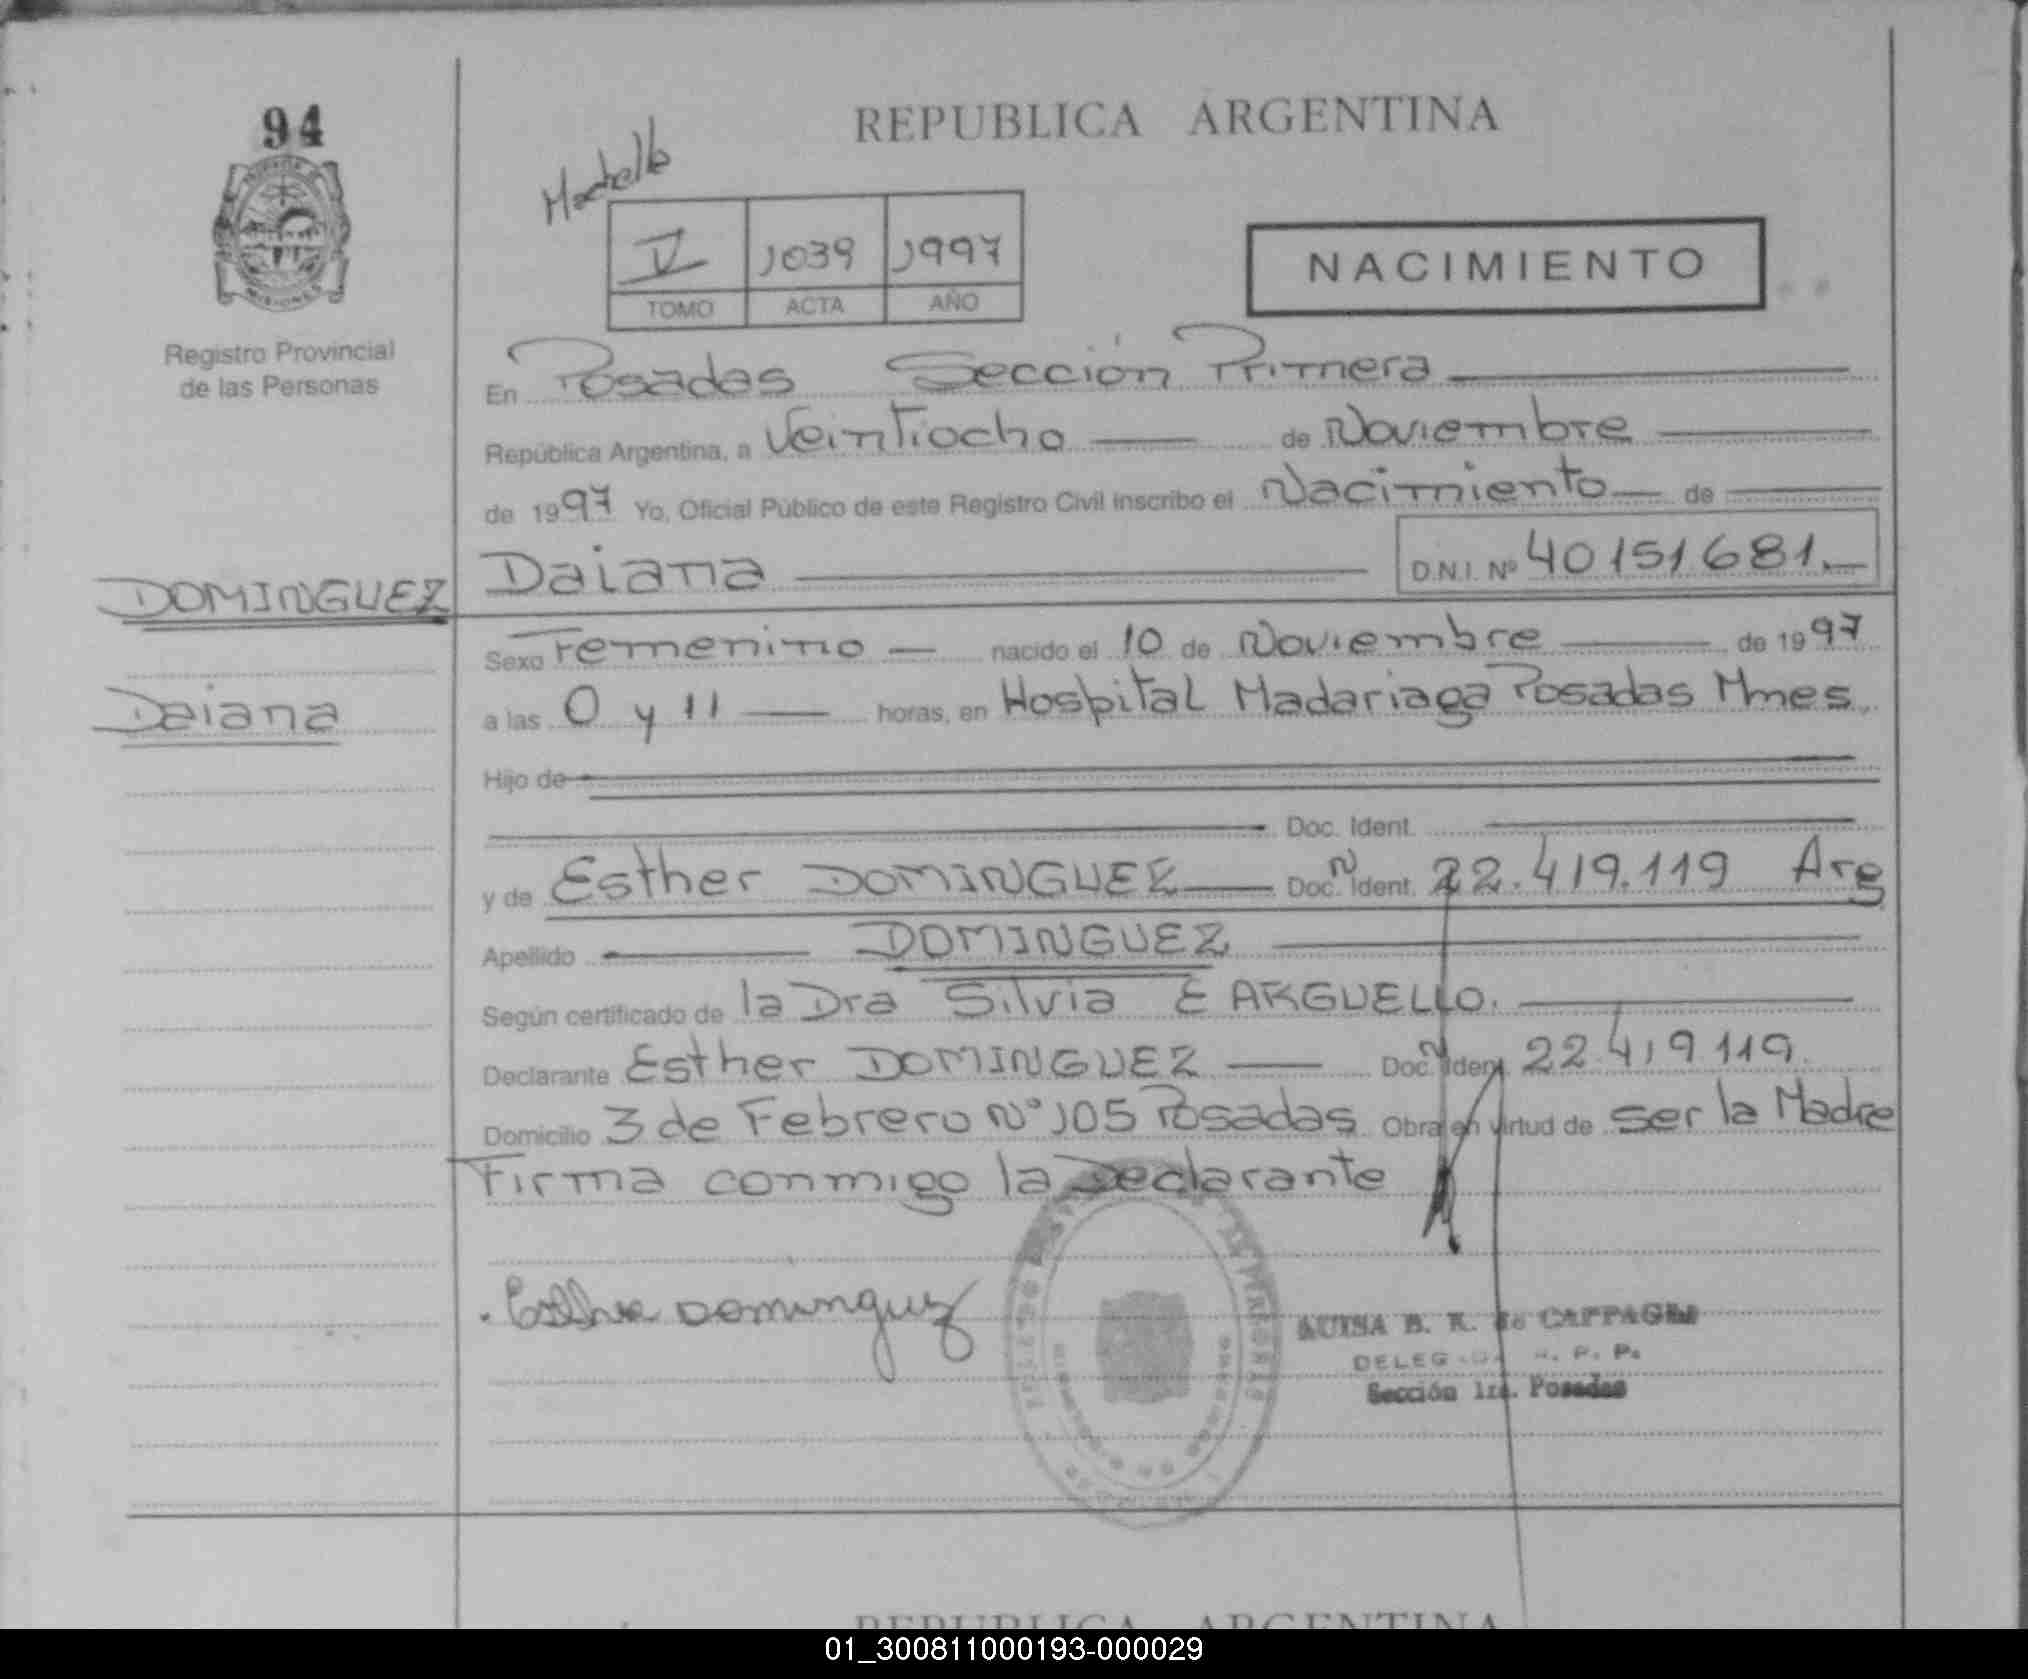 94
REPUBLICA ARGENTINA
V 1039 1997
TOMO ACTA AÑO
NACIMIENTO
MISIONES
Registro Provincial
de las Personas
En Posadas Sección Primera
República Argentina, a Veintiocho de Noviembre
de 1997 Yo, Oficial Público de este Registro Civil inscribo el Nacimiento de
DOMINGUEZ
Daiana
Daiana D.N.I. Nº 40151681.
Sexo Femenino nacido el 10 de Noviembre de 1997
a las 0 y 11 horas, en Hospital Madariaga Posadas Mnes.
Hijo de
Doc. Ident.
y de Esther DOMINGUEZ Doc. N Ident. 22.419.119 Arg
Apellido DOMINGUEZ
Según certificado de la Dra Silvia E ARGUELLO.
Declarante Esther DOMINGUEZ Doc. N Ident. 22.419.119.
Domicilio 3 de Febrero Nº 105 Posadas Obra en virtud de ser la Madre
Firma conmigo la Declarante
Esther Dominguez
B. R. de CAPPAGLI
R. P. P.
Sección 1ra. Posadas
REPUBLICA ARGENTINA
01_300811000193-000029